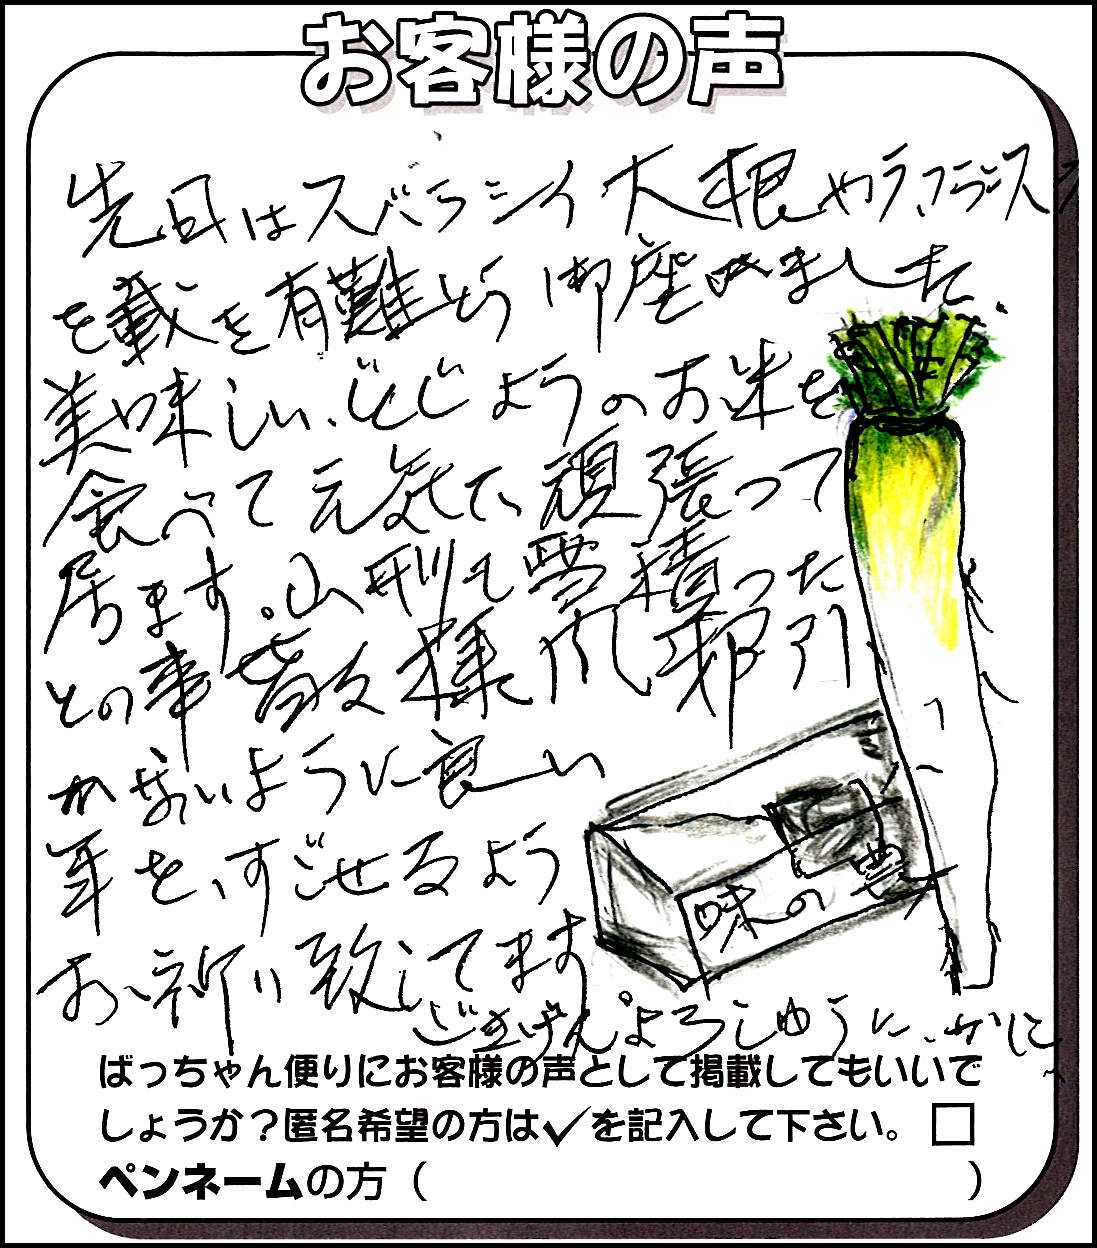 お客様の声
先日はスバラシイ大根やラ・フランス
を載を有難とう御座いました、
美味しい、どじょうのお米を
食べて元気で、頑張って
居ます。山形も雪積った
との事 皆 様 風邪引
かないように良い
年を、すごせるよう
お祈り致してます。
味の
ごきげんよろしゅうに、
ばっちゃん便りにお客様の声として掲載してもいいで
しょうか?匿名希望の方は✓を記入して下さい。□
ペンネームの方( )